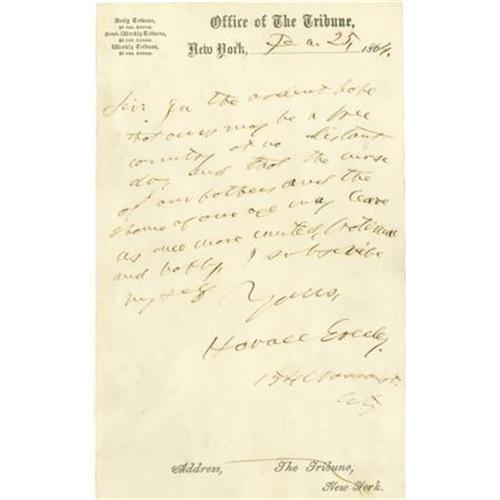 Daily Tribune,
Semi-Weekly Tribune,
Weekly Tribune,
Office of The Tribune,
New York, Ja. 25, 1864.
Sir: In the ardent hope
that ours may be a free
country at no distant
day and that the curse
of our fathers and the
shame of our age may leave
us once more united,
and happy, I subscribe
myself
Yours,
Horace Greeley
154 Nassau st.
City
Address, The Tribune,
New York.